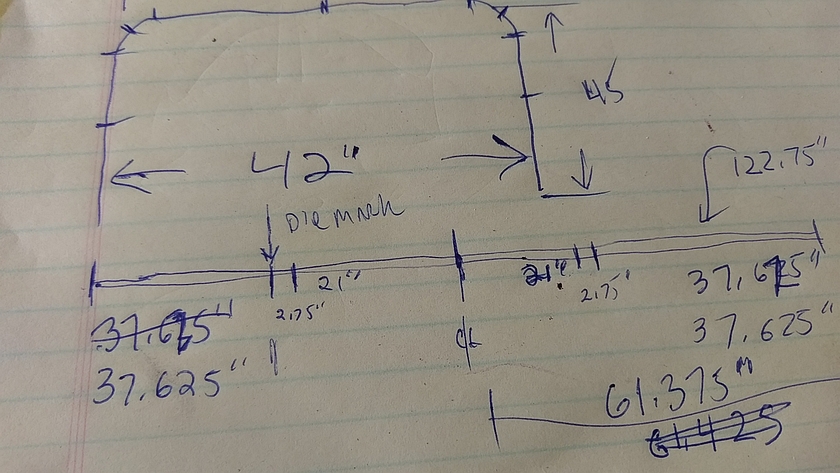 45
42"
122.75"
DIE MARK
21"
21"
2.75"
2.75"
37.625"
37.625"
37.625"
37.625"
CL
61.375"
61.425